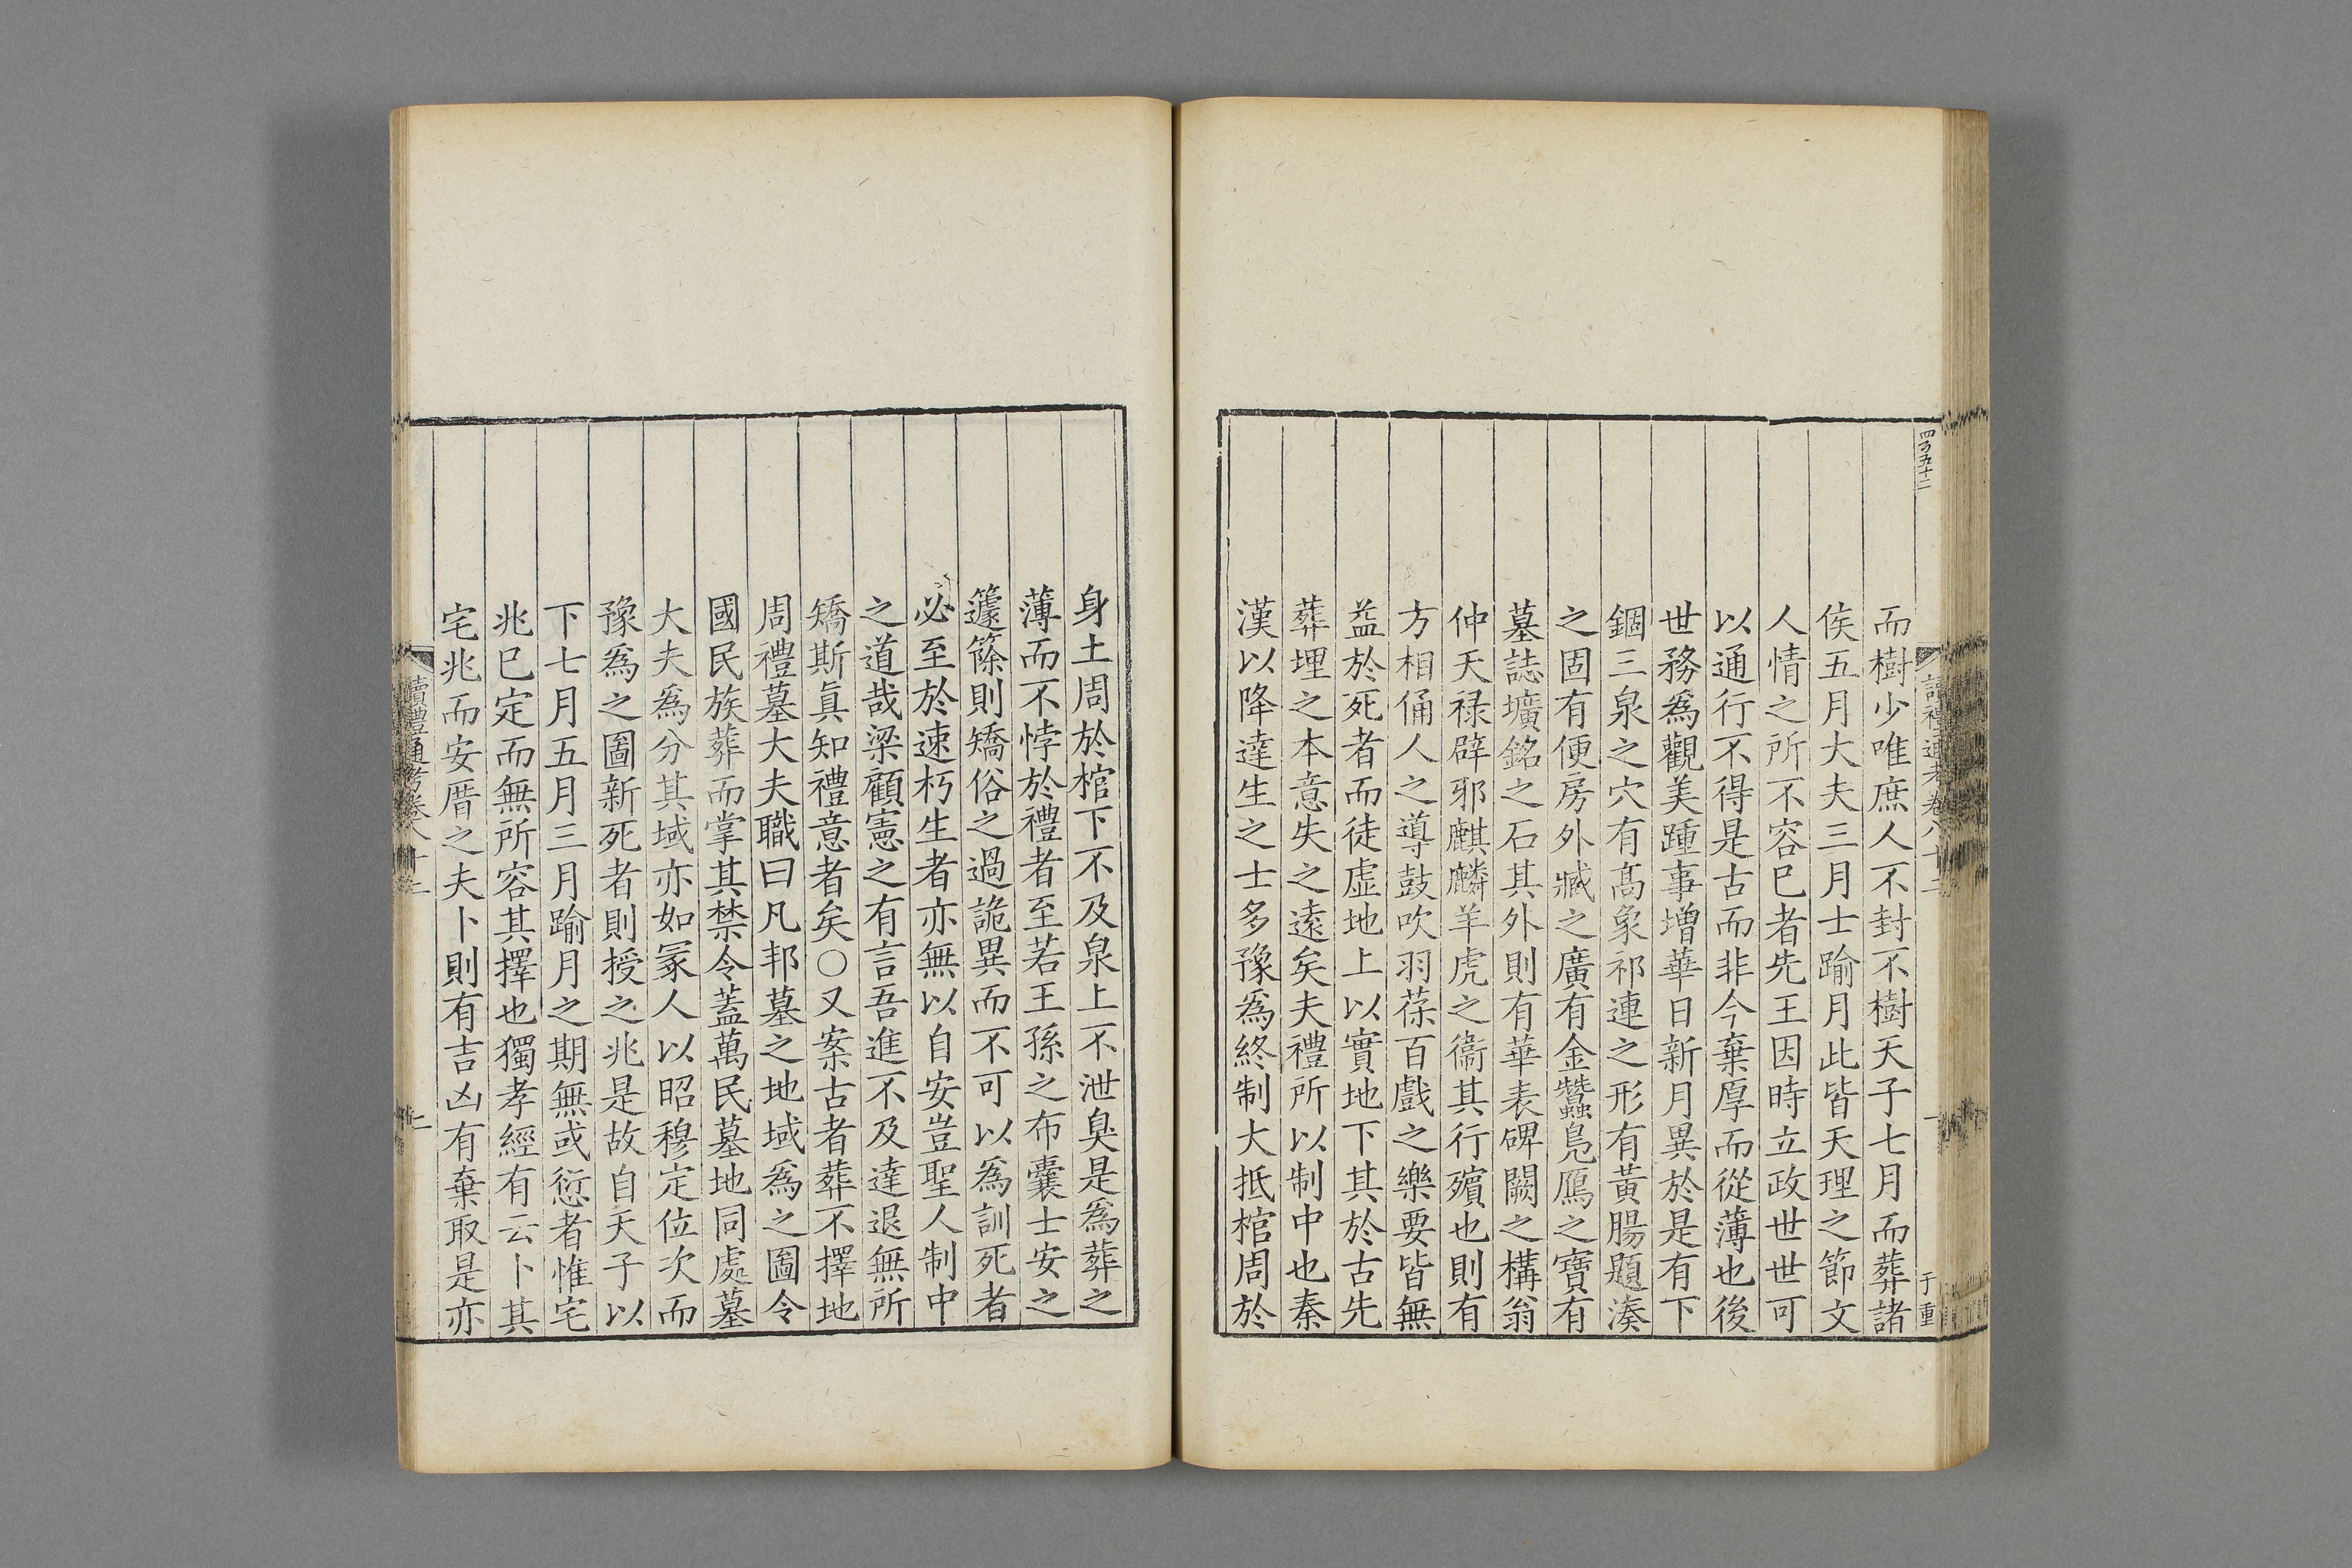 四百五十二
讀禮通考卷八十二
一
于重
而樹少唯庶人不封不樹天子七月而葬諸
侯五月大夫三月士踰月此皆天理之節文
人情之所不容已者先王因時立政世世可
以通行不得是古而非今棄厚而從薄也後
世務爲觀美踵事增華日新月異於是有下
錮三泉之穴有高象祁連之形有黃腸題湊
之固有便房外臧之廣有金蠶鳧鴈之寶有
墓誌壙銘之石其外則有華表碑闕之構翁
仲天禄辟邪麒麟羊虎之衞其行殯也則有
方相俑人之導鼓吹羽葆百戲之樂要皆無
益於死者而徒虛地上以實地下其於古先
葬埋之本意失之遠矣夫禮所以制中也秦
漢以降達生之士多豫爲終制大抵棺周於
身土周於棺下不及泉上不泄臭是爲葬之
薄而不悖於禮者至若王孫之布囊士安之
籧篨則矯俗之過詭異而不可以爲訓死者
必至於速朽生者亦無以自安豈聖人制中
之道哉梁顧憲之有言吾進不及達退無所
矯斯眞知禮意者矣○又案古者葬不擇地
周禮墓大夫職曰凡邦墓之地域爲之圖令
國民族葬而掌其禁令蓋萬民墓地同處墓
大夫爲分其域亦如冢人以昭穆定位次而
豫爲之圖新死者則授之兆是故自天子以
下七月五月三月踰月之期無或愆者惟宅
兆已定而無所容其擇也獨孝經有云卜其
宅兆而安厝之夫卜則有吉凶有棄取是亦
讀禮通考卷八十二
二